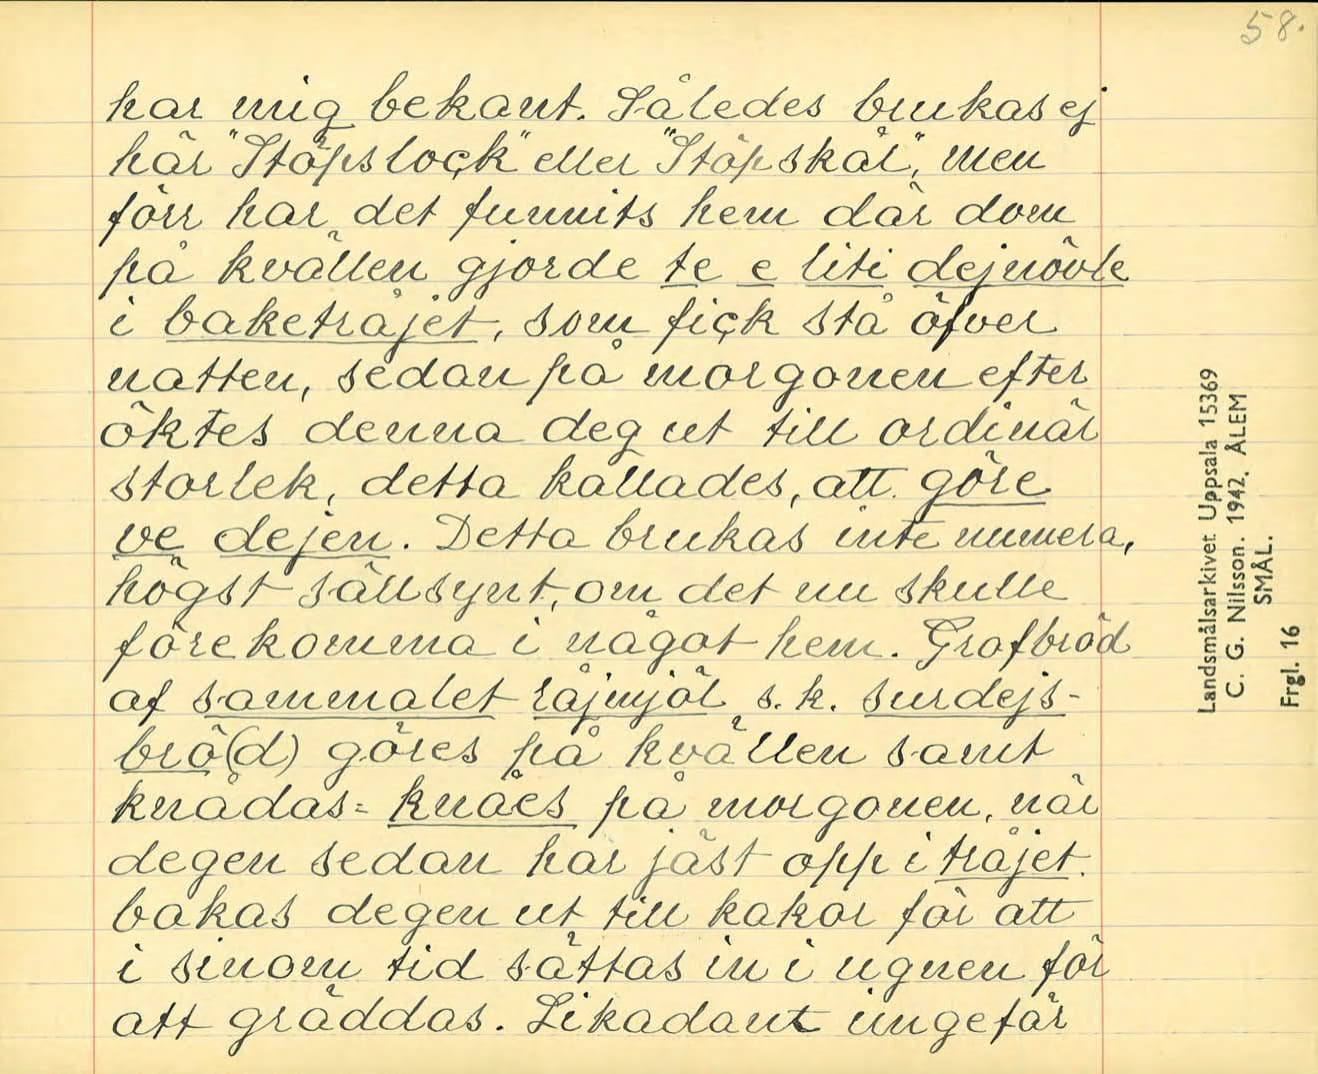 58.
har mig bekant. Således brukas ej
här "Stöpslock" eller "Stöpskål", men
förr har det funnits hem där dom
på kvällen gjorde te e liti dejnövle
i baketråjet, som fick stå öfver
natten, sedan på morgonen efter
öktes denna deg ut till ordinär
storlek, detta kallades, att göre
ve dejen. Detta brukas inte numera,
högst sällsynt, om det nu skulle
förekomma i något hem. Grofbröd
af sammalet råjmjöl s.k. surdejs-
brö(d) göres på kvällen samt
knådas = knåes på morgonen, när
degen sedan har jäst opp i tråjet.
bakas degen ut till kakor för att
i sinom tid sättas in i ugnen för
att gräddas. Likadant ungefär
Landsmålsarkivet Uppsala 15369
C. G. Nilsson. 1942. ÅLEM
SMÅL.
Frgl. 16